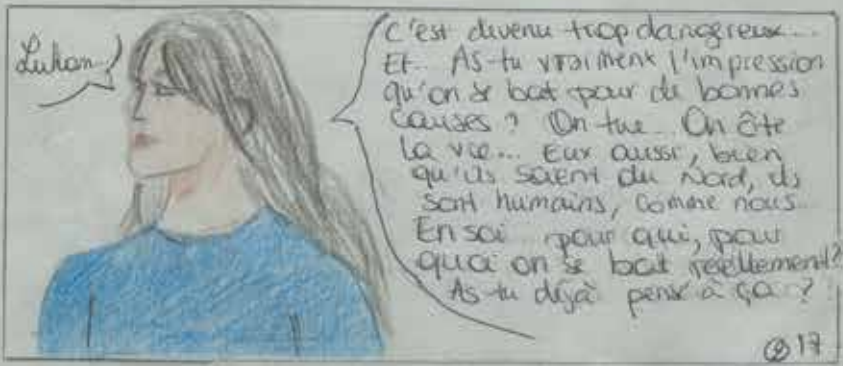 Luhan
C'est devenu trop dangereux...
Et... As-tu vraiment l'impression
qu'on se bat pour de bonnes
causes ? On tue... On ôte
la vie... Eux aussi, bien
qu'ils soient du Nord, ils
sont humains, comme nous...
En soi... pour qui, pour
quoi on se bat réellement ?
As-tu déjà pensé à ça ?
17